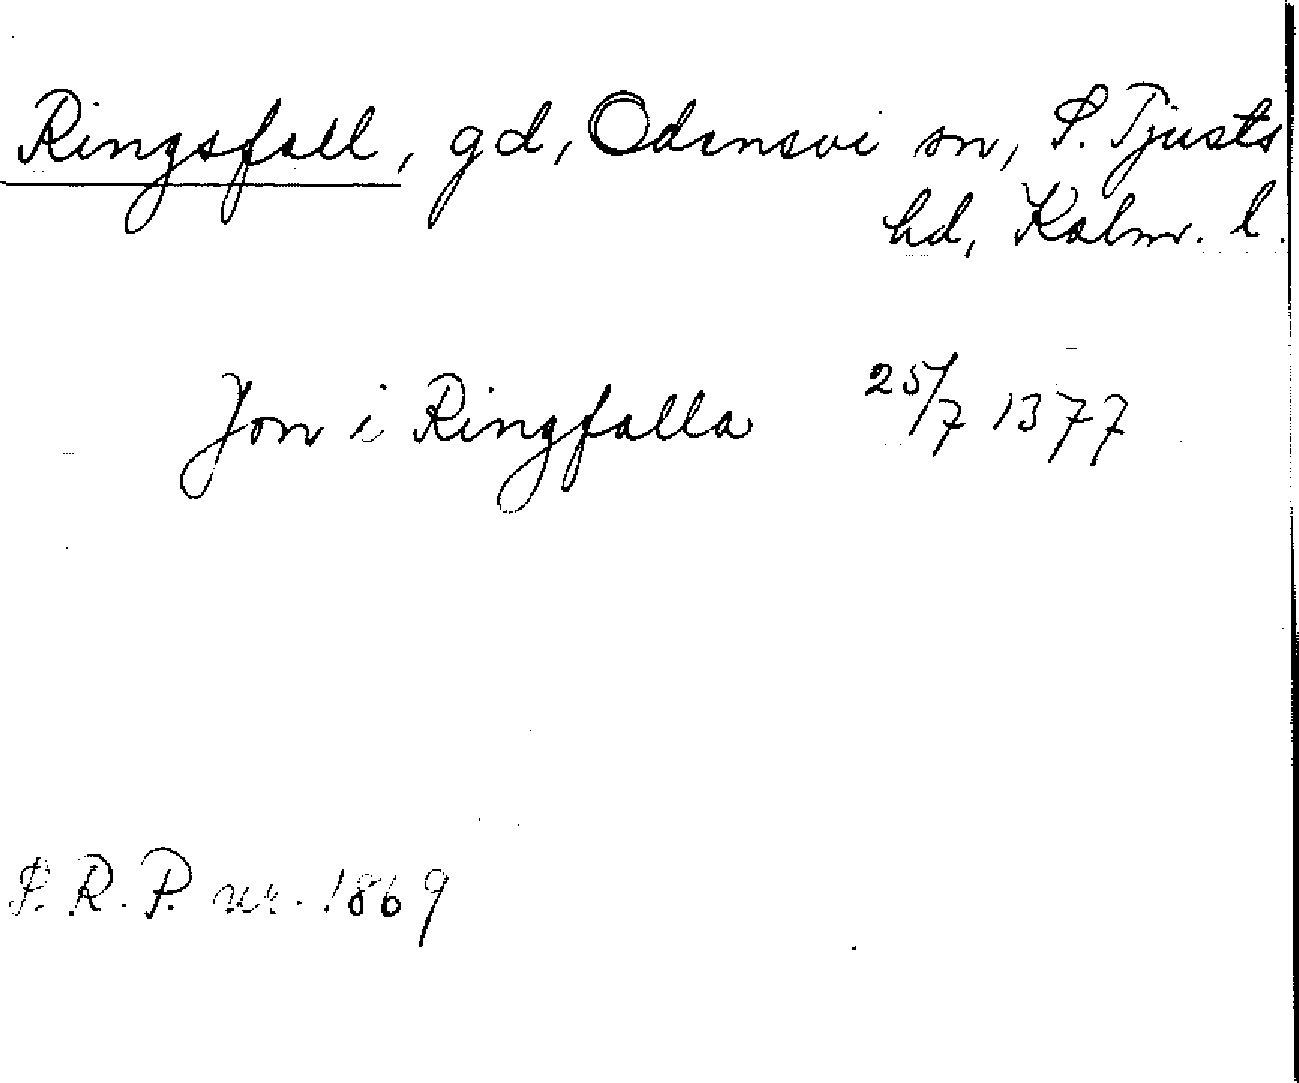 Ringsfall, gd, Odensvi sn, S. Tjusts
hd, Kalm. l.
Jon i Ringfalla 25/7 1377
S. R. P. nr. 1869